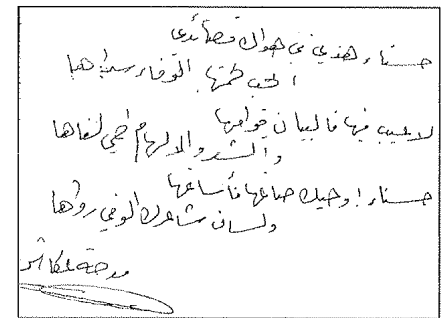 حسناء هذي في هواك قصائدي
الحب لحمتها الوفاء سداها
لا عيب فيها فالبيان قوامها
والشعر والالهام لفاها
حسناء! وحيك صاغها فأساغها
ولسان شاعرك الوفي رواها
مدحة عكاش